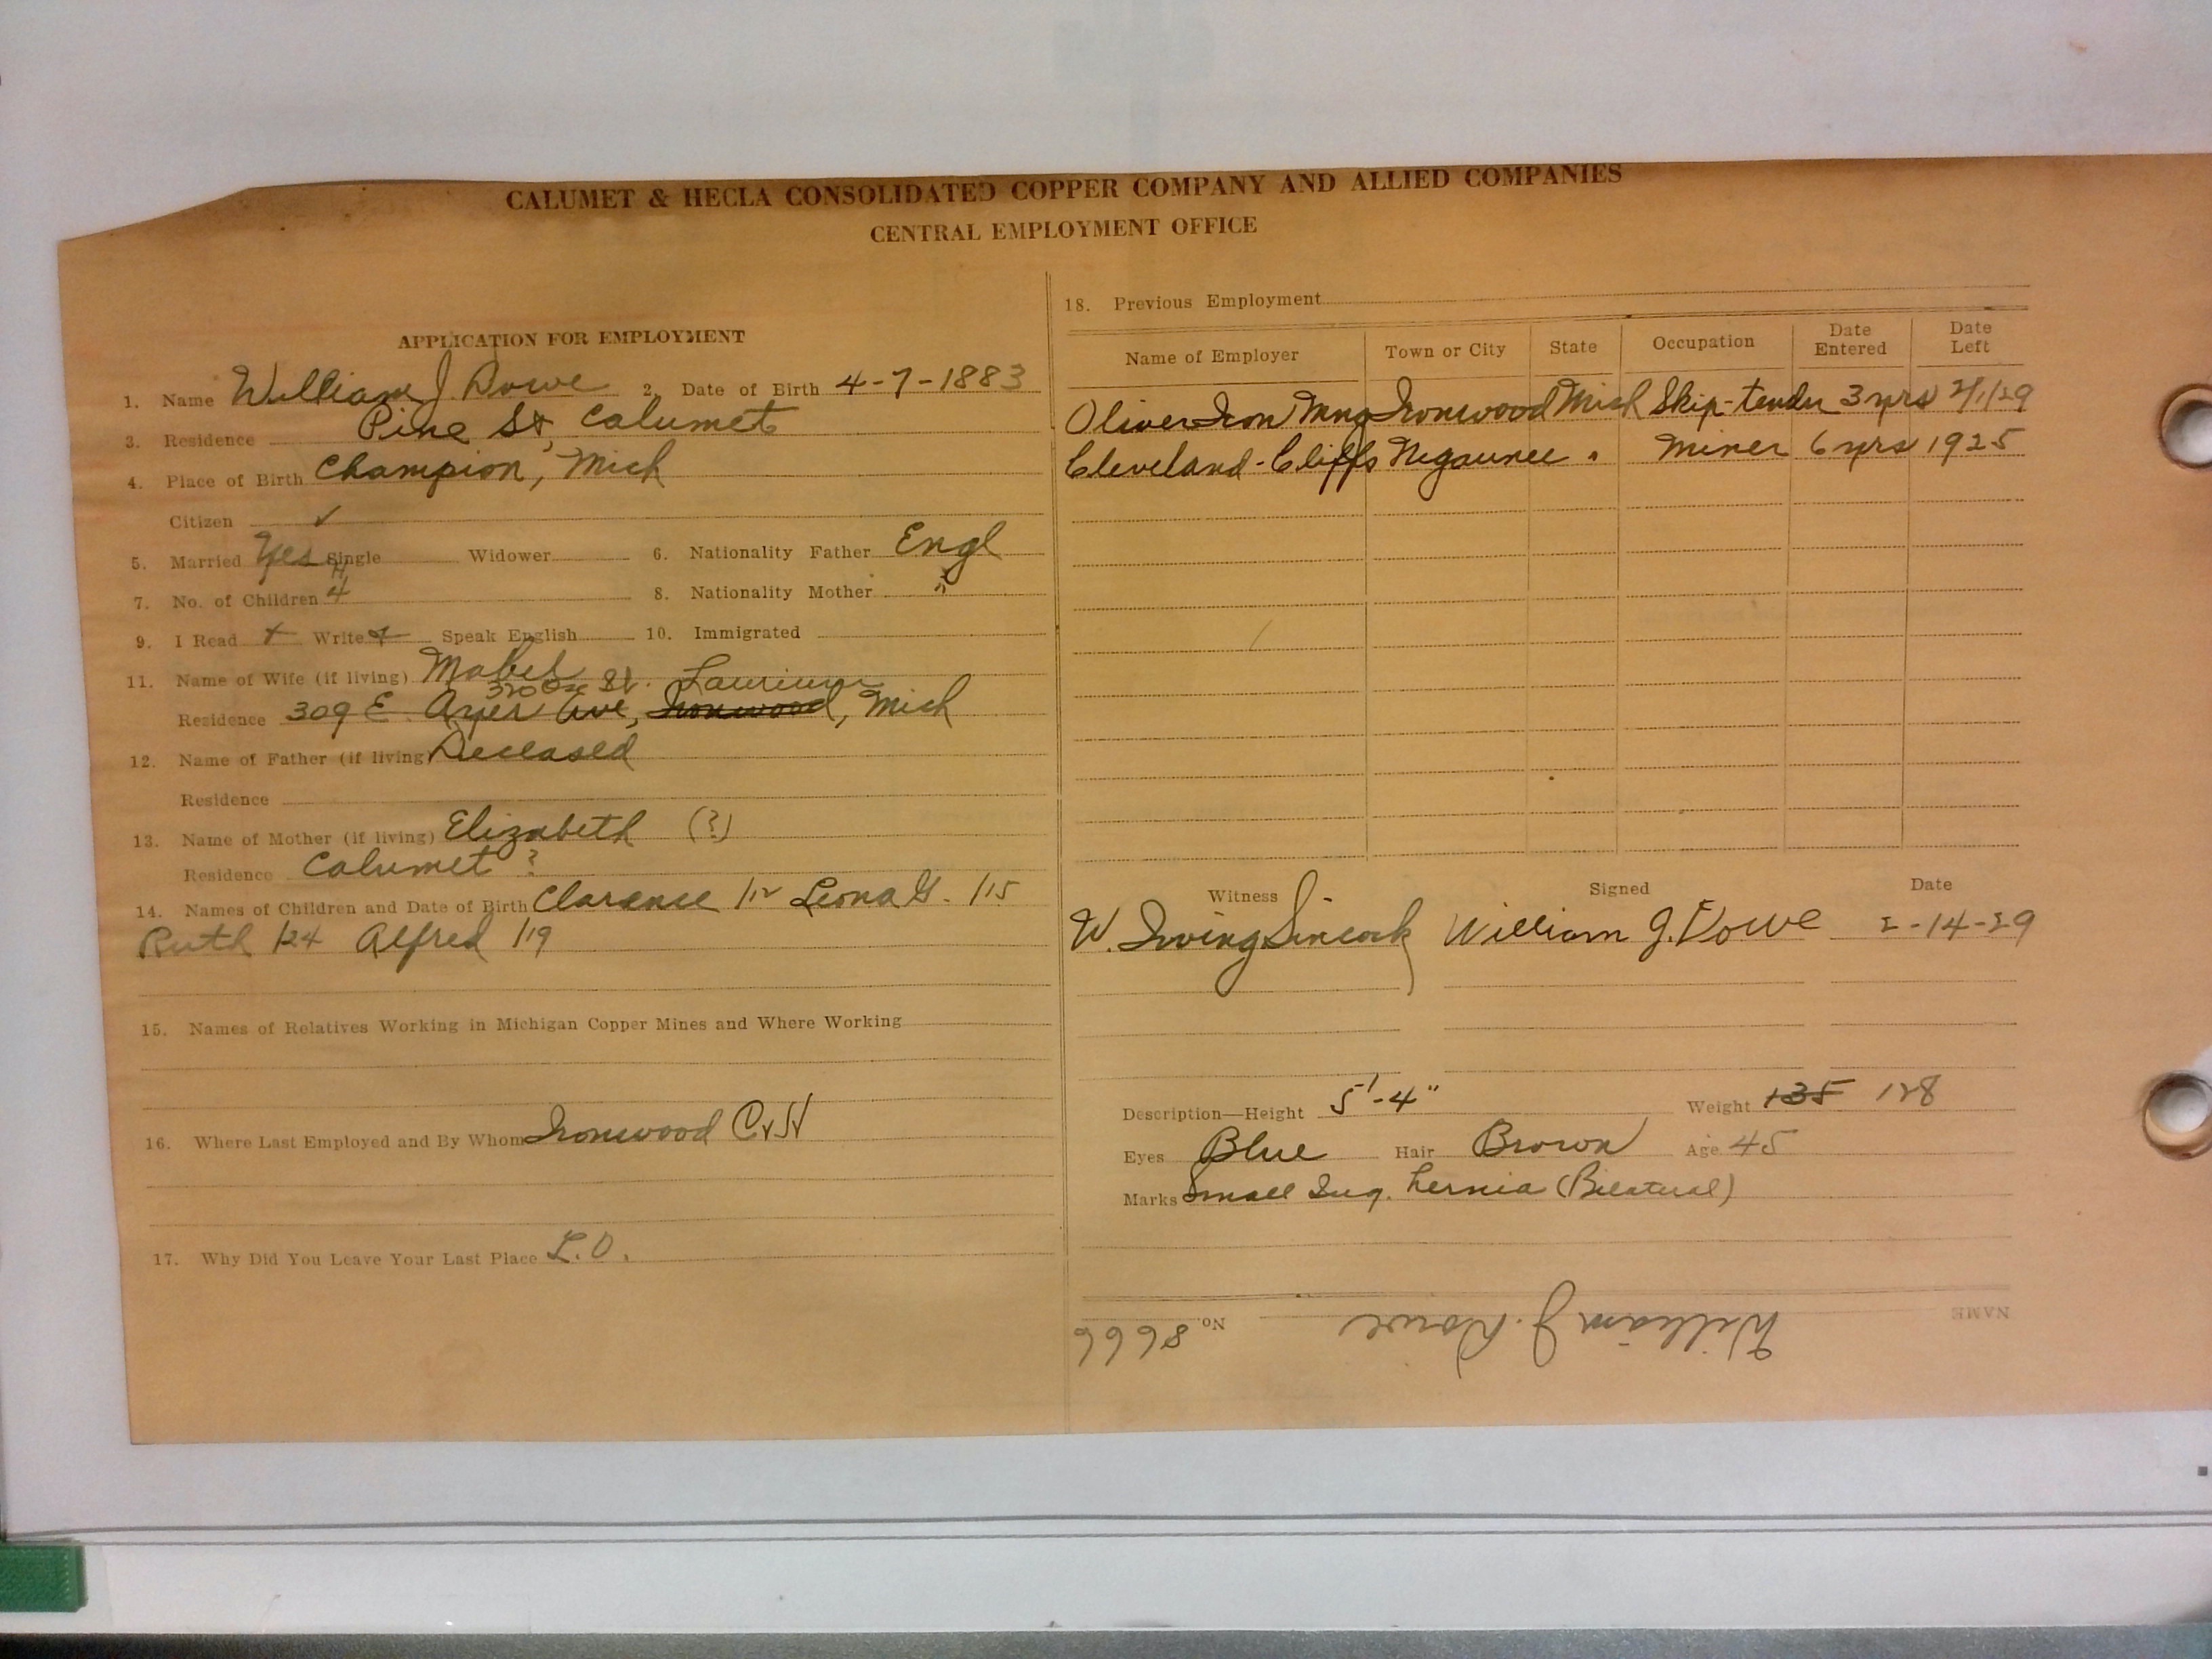 CALUMET & HECLA CONSOLIDATED COPPER COMPANY AND ALLIED COMPANIES
CENTRAL EMPLOYMENT OFFICE
APPLICATION FOR EMPLOYMENT
1. Name William J Rowe 2. Date of Birth 4-7-1883
3. Residence Pine St, Calumet
4. Place of Birth Champion, Mich
Citizen ✓
5. Married Yes Single Widower 6. Nationality Father Engl
7. No. of Children 4 8. Nationality Mother "
9. I Read Write Speak English 10. Immigrated
11. Name of Wife (if living) Mabel
St. Laurium
Residence 309 E. Ayer Ave, Ironwood, Mich
12. Name of Father (if living) Deceased
Residence
13. Name of Mother (if living) Elizabeth (?)
Residence Calumet ?
14. Names of Children and Date of Birth Clarence /12 Leona G. /15
Ruth /24 Alfred /19
15. Names of Relatives Working in Michigan Copper Mines and Where Working
16. Where Last Employed and By Whom Ironwood C&H
17. Why Did You Leave Your Last Place L.O.
18. Previous Employment
Name of Employer Town or City State Occupation Date Entered Date Left
Oliver Iron Mng Ironwood Mich Skip-tender 3 yrs 2/1/29
Cleveland-Cliffs Negaunee " Miner 6 yrs 1925
Witness Signed Date
W. Irving Sincock William J. Rowe 2-14-29
Description—Height 5'-4" Weight 135 128
Eyes Blue Hair Brown Age 45
Marks Small Ing. hernia (Bilatural)
NAME William J. Rowe No. 8666